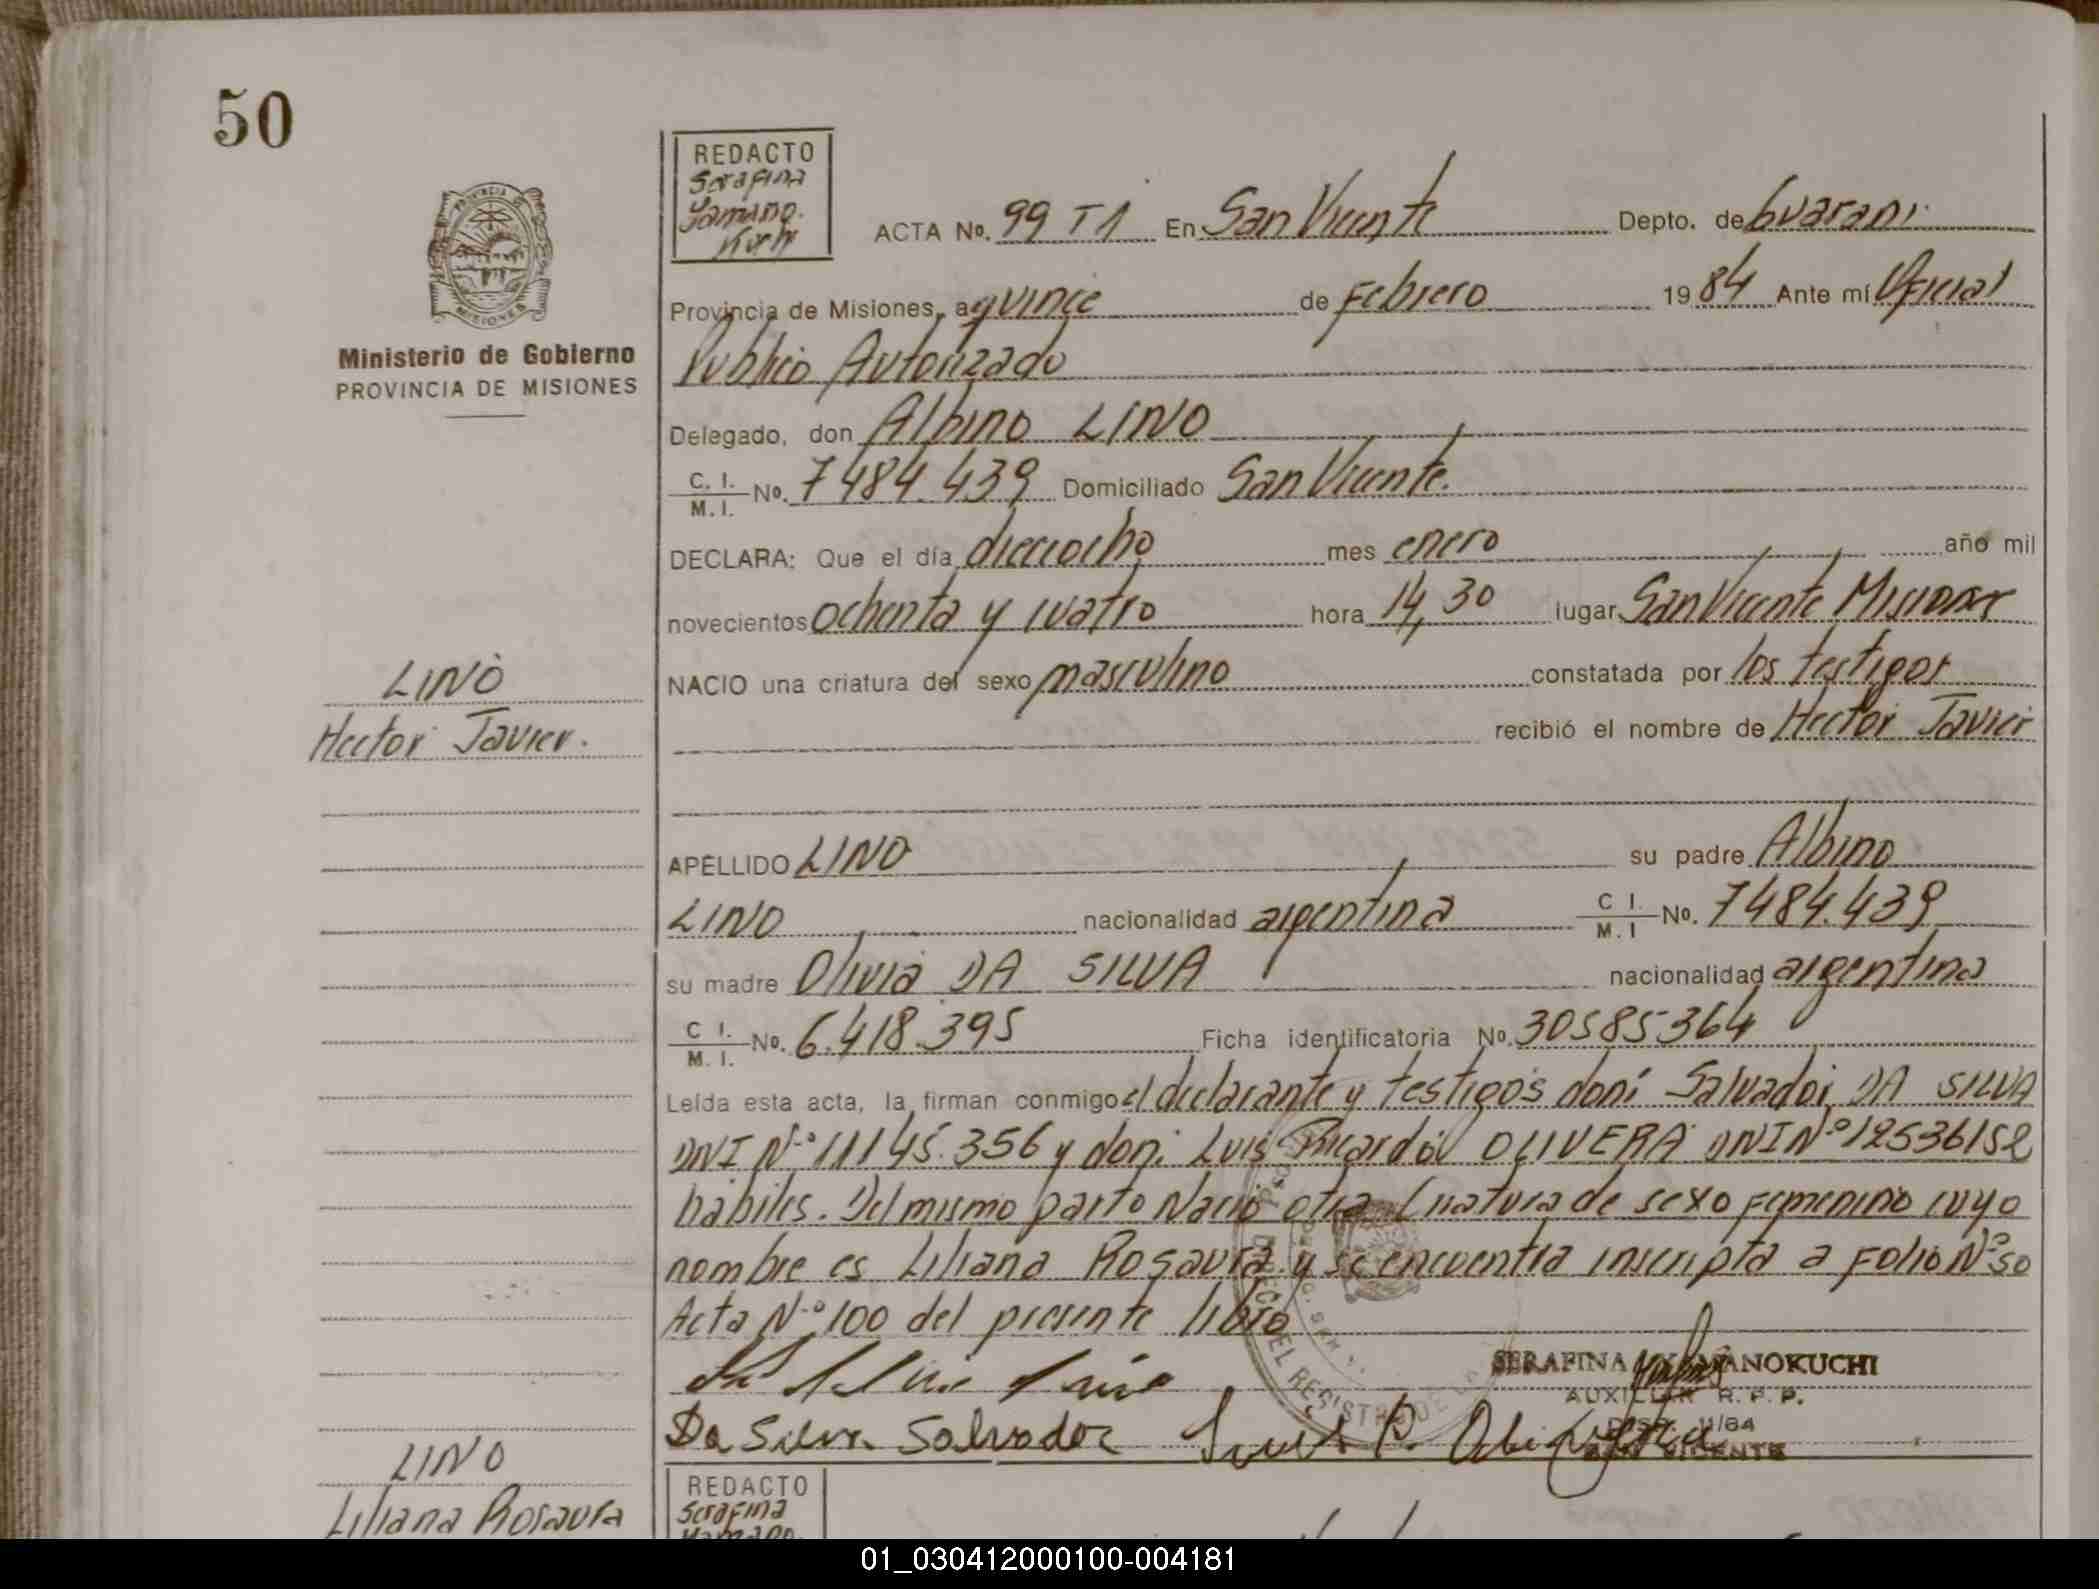 50
REDACTO
Serafina
Yamano.
Kuchi
PROVINCIA
MISIONES
Ministerio de Gobierno
PROVINCIA DE MISIONES
ACTA No. 99 T1 En San Vicente Depto. de Guarani
Provincia de Misiones, a quince de Febrero 1984 Ante mí Oficial
Publico Autorizado
Delegado, don Albino LINO
C. I. / M. I. No. 7484.439 Domiciliado San Vicente.
DECLARA: Que el día dieciocho mes enero año mil
novecientos ochenta y cuatro hora 14,30 lugar San Vicente Misiones
NACIO una criatura del sexo masculino constatada por los testigos
recibió el nombre de Hector Javier
LINO
Hector Javier.
APELLIDO LINO su padre Albino
LINO nacionalidad argentina C I. / M. I No. 7484.439
su madre Olivia DA SILVA nacionalidad argentina
C I. / M. I. No. 6.418.395 Ficha identificatoria No. 30585364
Leída esta acta, la firman conmigo el declarante y testigos don: Salvador DA SILVA
DNI N° 11145.356 y don: Luis Ricardo OLIVERA DNI N° 12536152
hábiles. Del mismo parto Nació otra Criatura de sexo Femenino cuyo
nombre es Liliana Rosaura y se encuentra inscripta a Folio N° 50
Acta N° 100 del presente libro
SERAFINA YAMANOKUCHI
AUXILIAR R. P. P.
DISP. 11/84
SAN VICENTE
Da Silva Salvador
LINO
Liliana Rosaura
REDACTO
Serafina
Yamano.
01_030412000100-004181